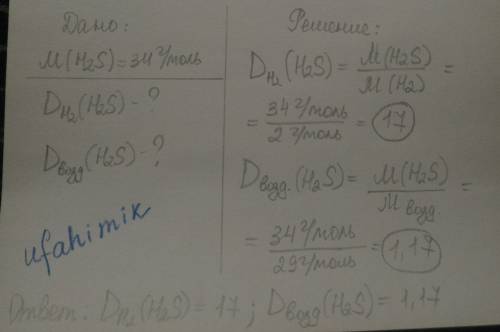 Дано:
M(H₂S)=34 г/моль
D_H₂(H₂S) - ?
D_возд(H₂S) - ?
ufahimik
Решение:
D_H₂(H₂S) = M(H₂S)/M(H₂) =
= 34 г/моль / 2 г/моль = 17
D_возд.(H₂S) = M(H₂S)/M_возд. =
= 34 г/моль / 29 г/моль = 1,17
Ответ: D_H₂(H₂S) = 17 ; D_возд(H₂S) = 1,17